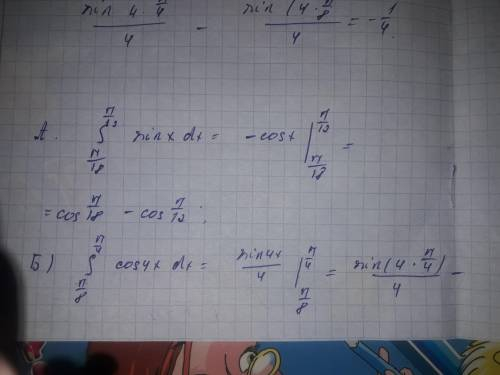 sin 4 · π/4 / 4 − sin (4 · π/8) / 4 = − 1/4.
А. ∫_{π/18}^{π/12} sin x dx = − cos x |_{π/18}^{π/12} =
= cos π/18 − cos π/12 ;
Б) ∫_{π/8}^{π/4} cos 4x dx = sin 4x / 4 |_{π/8}^{π/4} = sin (4 · π/4) / 4 −